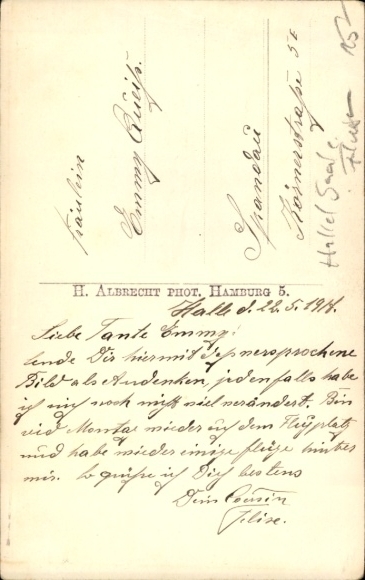 Fräulein
Emmy Queiß.
Spandau
Körnerstraße 5 I
Halle/Saale
H. Albrecht phot. Hamburg 5.
Halle d. 22.5.1918.
Liebe Tante Emmy!
sende Dir hiermit das versprochene
Bild als Andenken, jedenfalls habe
ich mich noch nicht viel verändert. Bin
seid Montag wieder auf dem Flugplatz
und habe wieder einige Flüge hinter
mir. So grüße ich Dich bestens
Dein Cousin